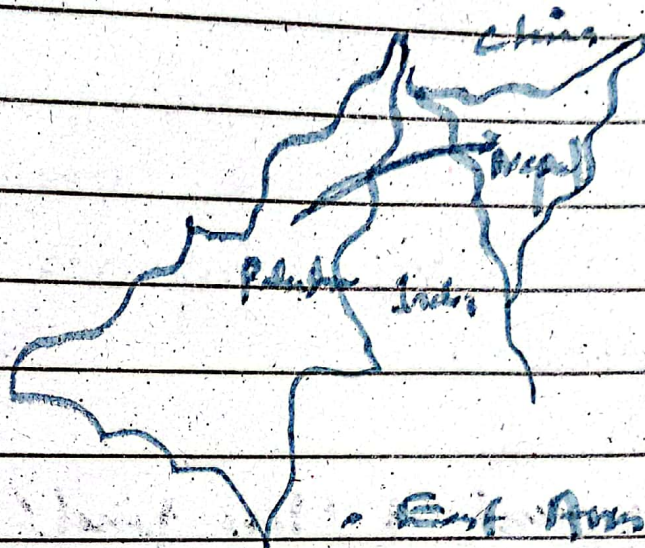 China
Nepal
Pakistan India
• East